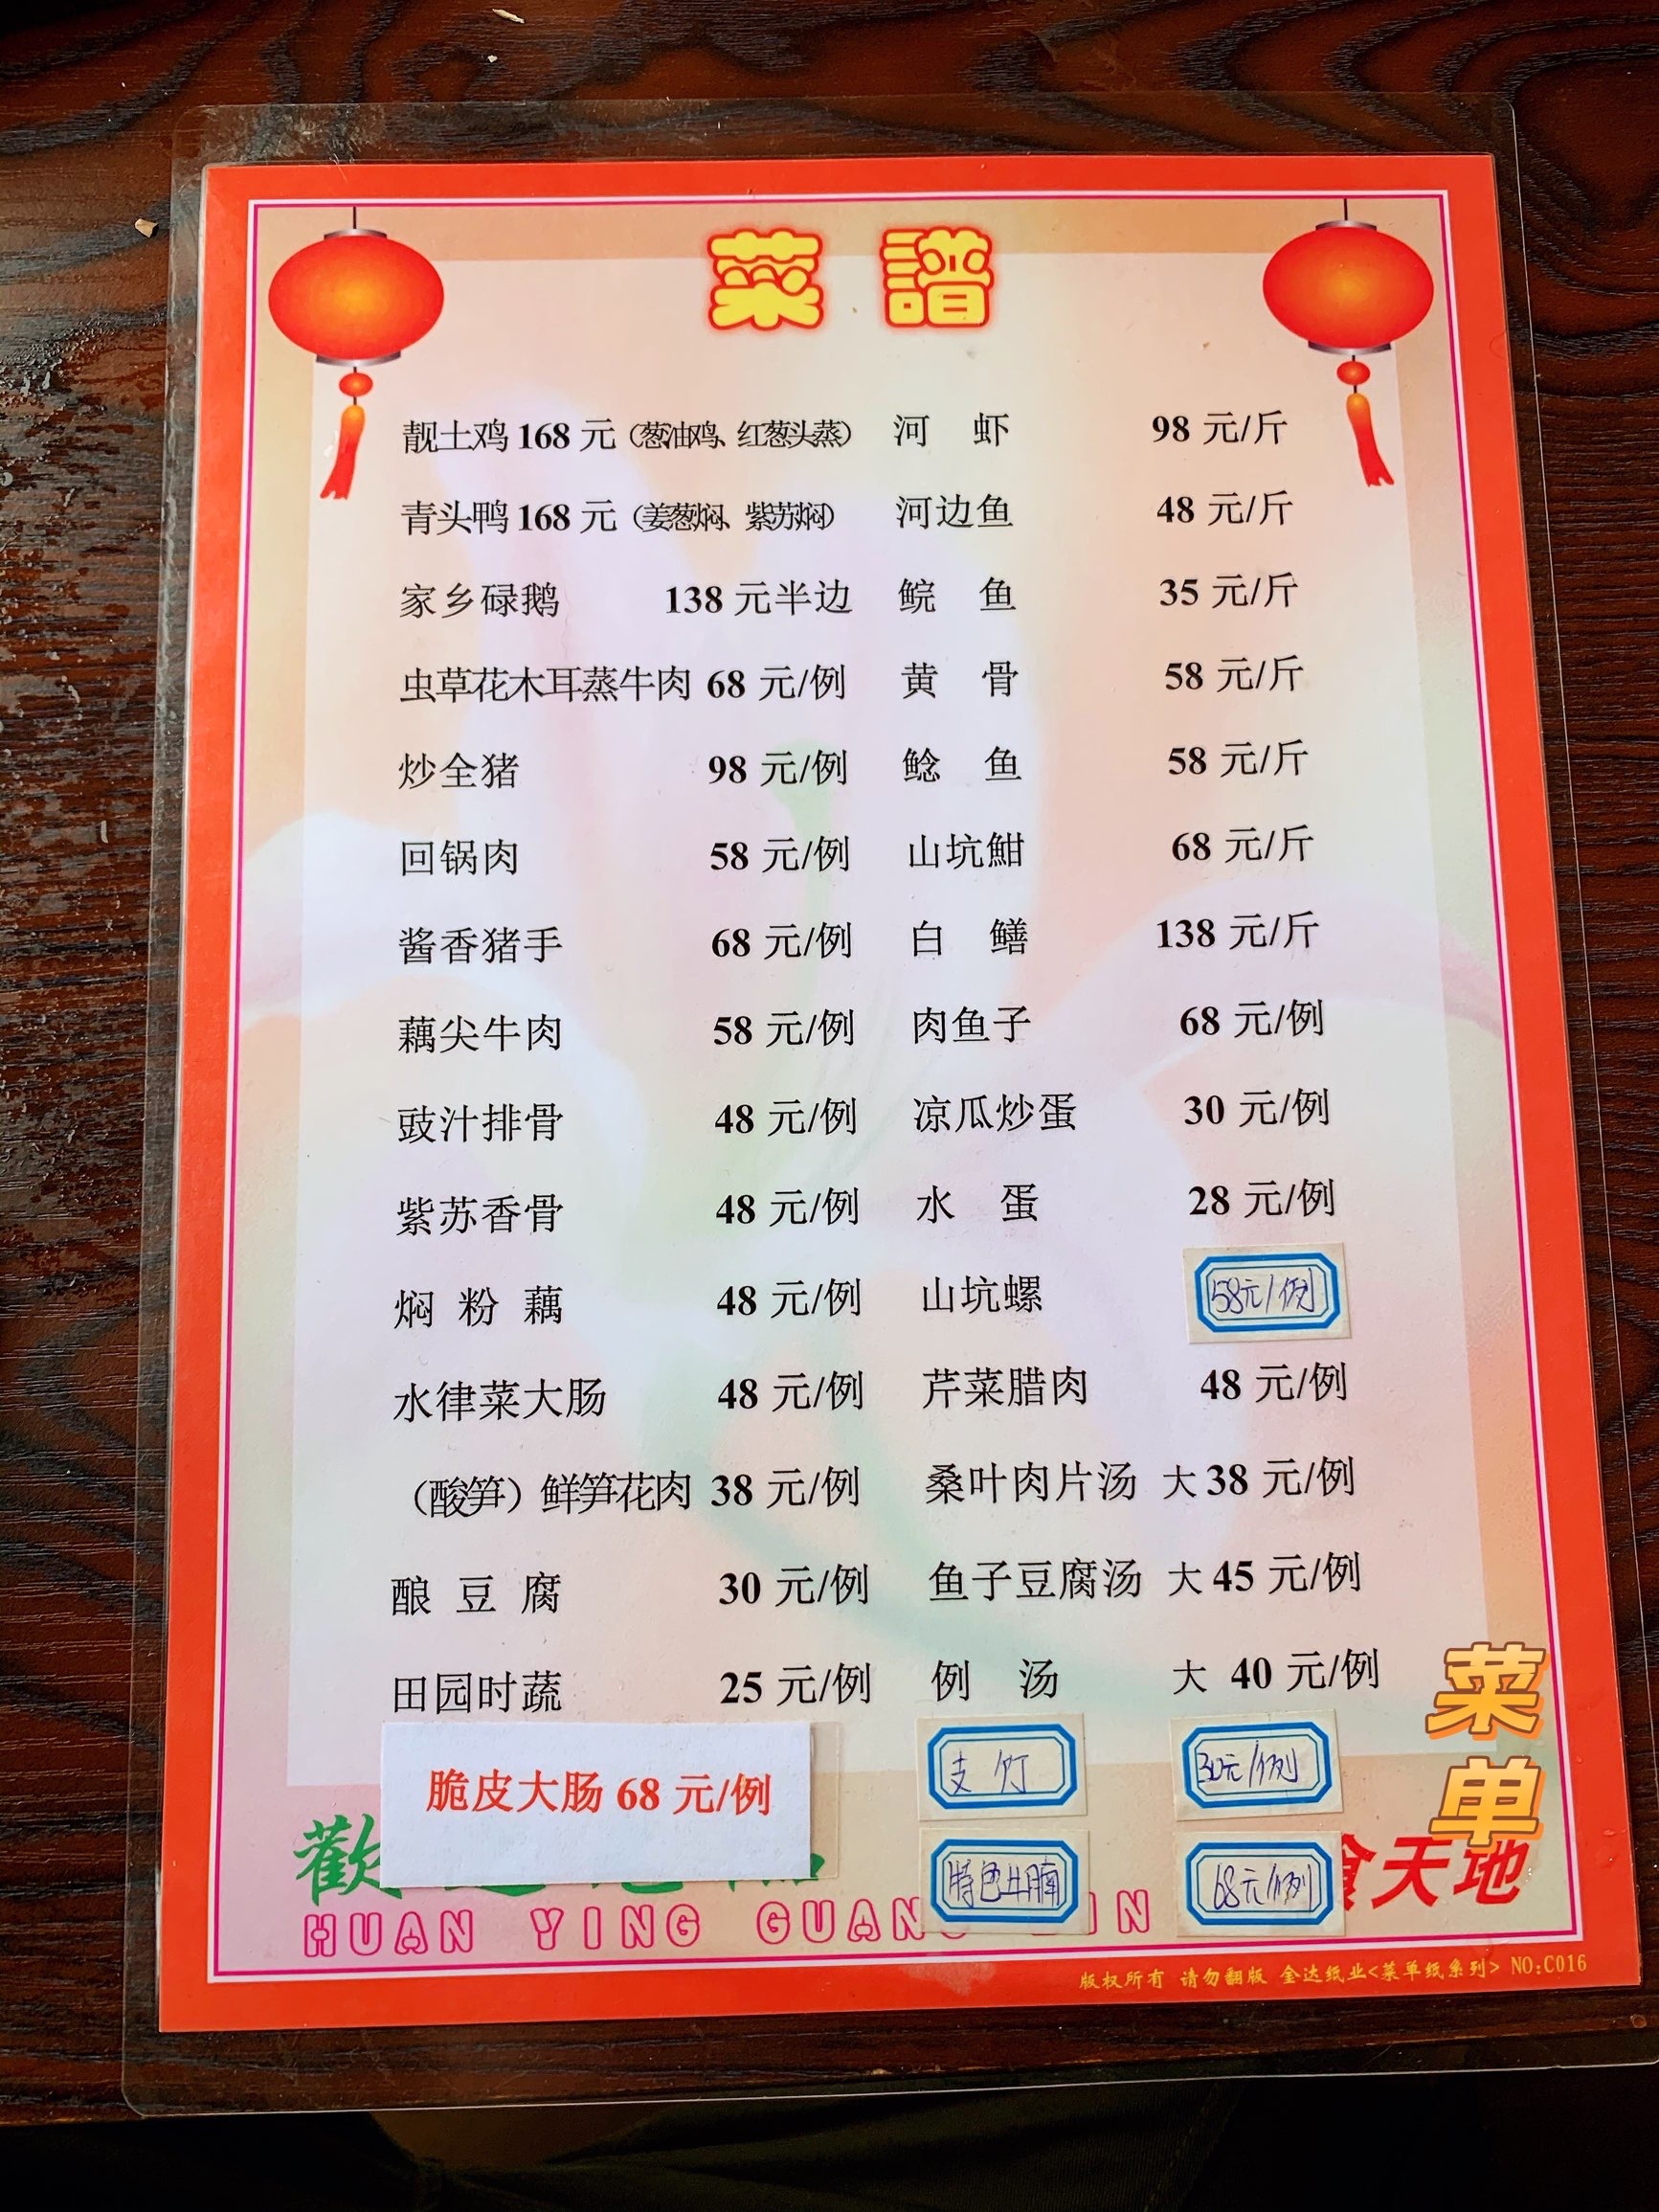 菜譜
靓土鸡 168 元（葱油鸡、红葱头蒸） 河 虾 98 元/斤
青头鸭 168 元（姜葱焖、紫苏焖） 河边鱼 48 元/斤
家乡碌鹅 138 元半边 鲩 鱼 35 元/斤
虫草花木耳蒸牛肉 68 元/例 黄 骨 58 元/斤
炒全猪 98 元/例 鲶 鱼 58 元/斤
回锅肉 58 元/例 山坑鲑 68 元/斤
酱香猪手 68 元/例 白 鳝 138 元/斤
藕尖牛肉 58 元/例 肉鱼子 68 元/例
豉汁排骨 48 元/例 凉瓜炒蛋 30 元/例
紫苏香骨 48 元/例 水 蛋 28 元/例
焖 粉 藕 48 元/例 山坑螺 58元/例
水律菜大肠 48 元/例 芹菜腊肉 48 元/例
（酸笋）鲜笋花肉 38 元/例 桑叶肉片汤 大 38 元/例
酿 豆 腐 30 元/例 鱼子豆腐汤 大 45 元/例
田园时蔬 25 元/例 例 汤 大 40 元/例
脆皮大肠 68 元/例
支竹 30元/例
特色牛腩 68元/例
歡
食天地
HUAN YING GUAN
IN
版权所有 请勿翻版 金达纸业<菜单纸系列> NO:C016
菜单